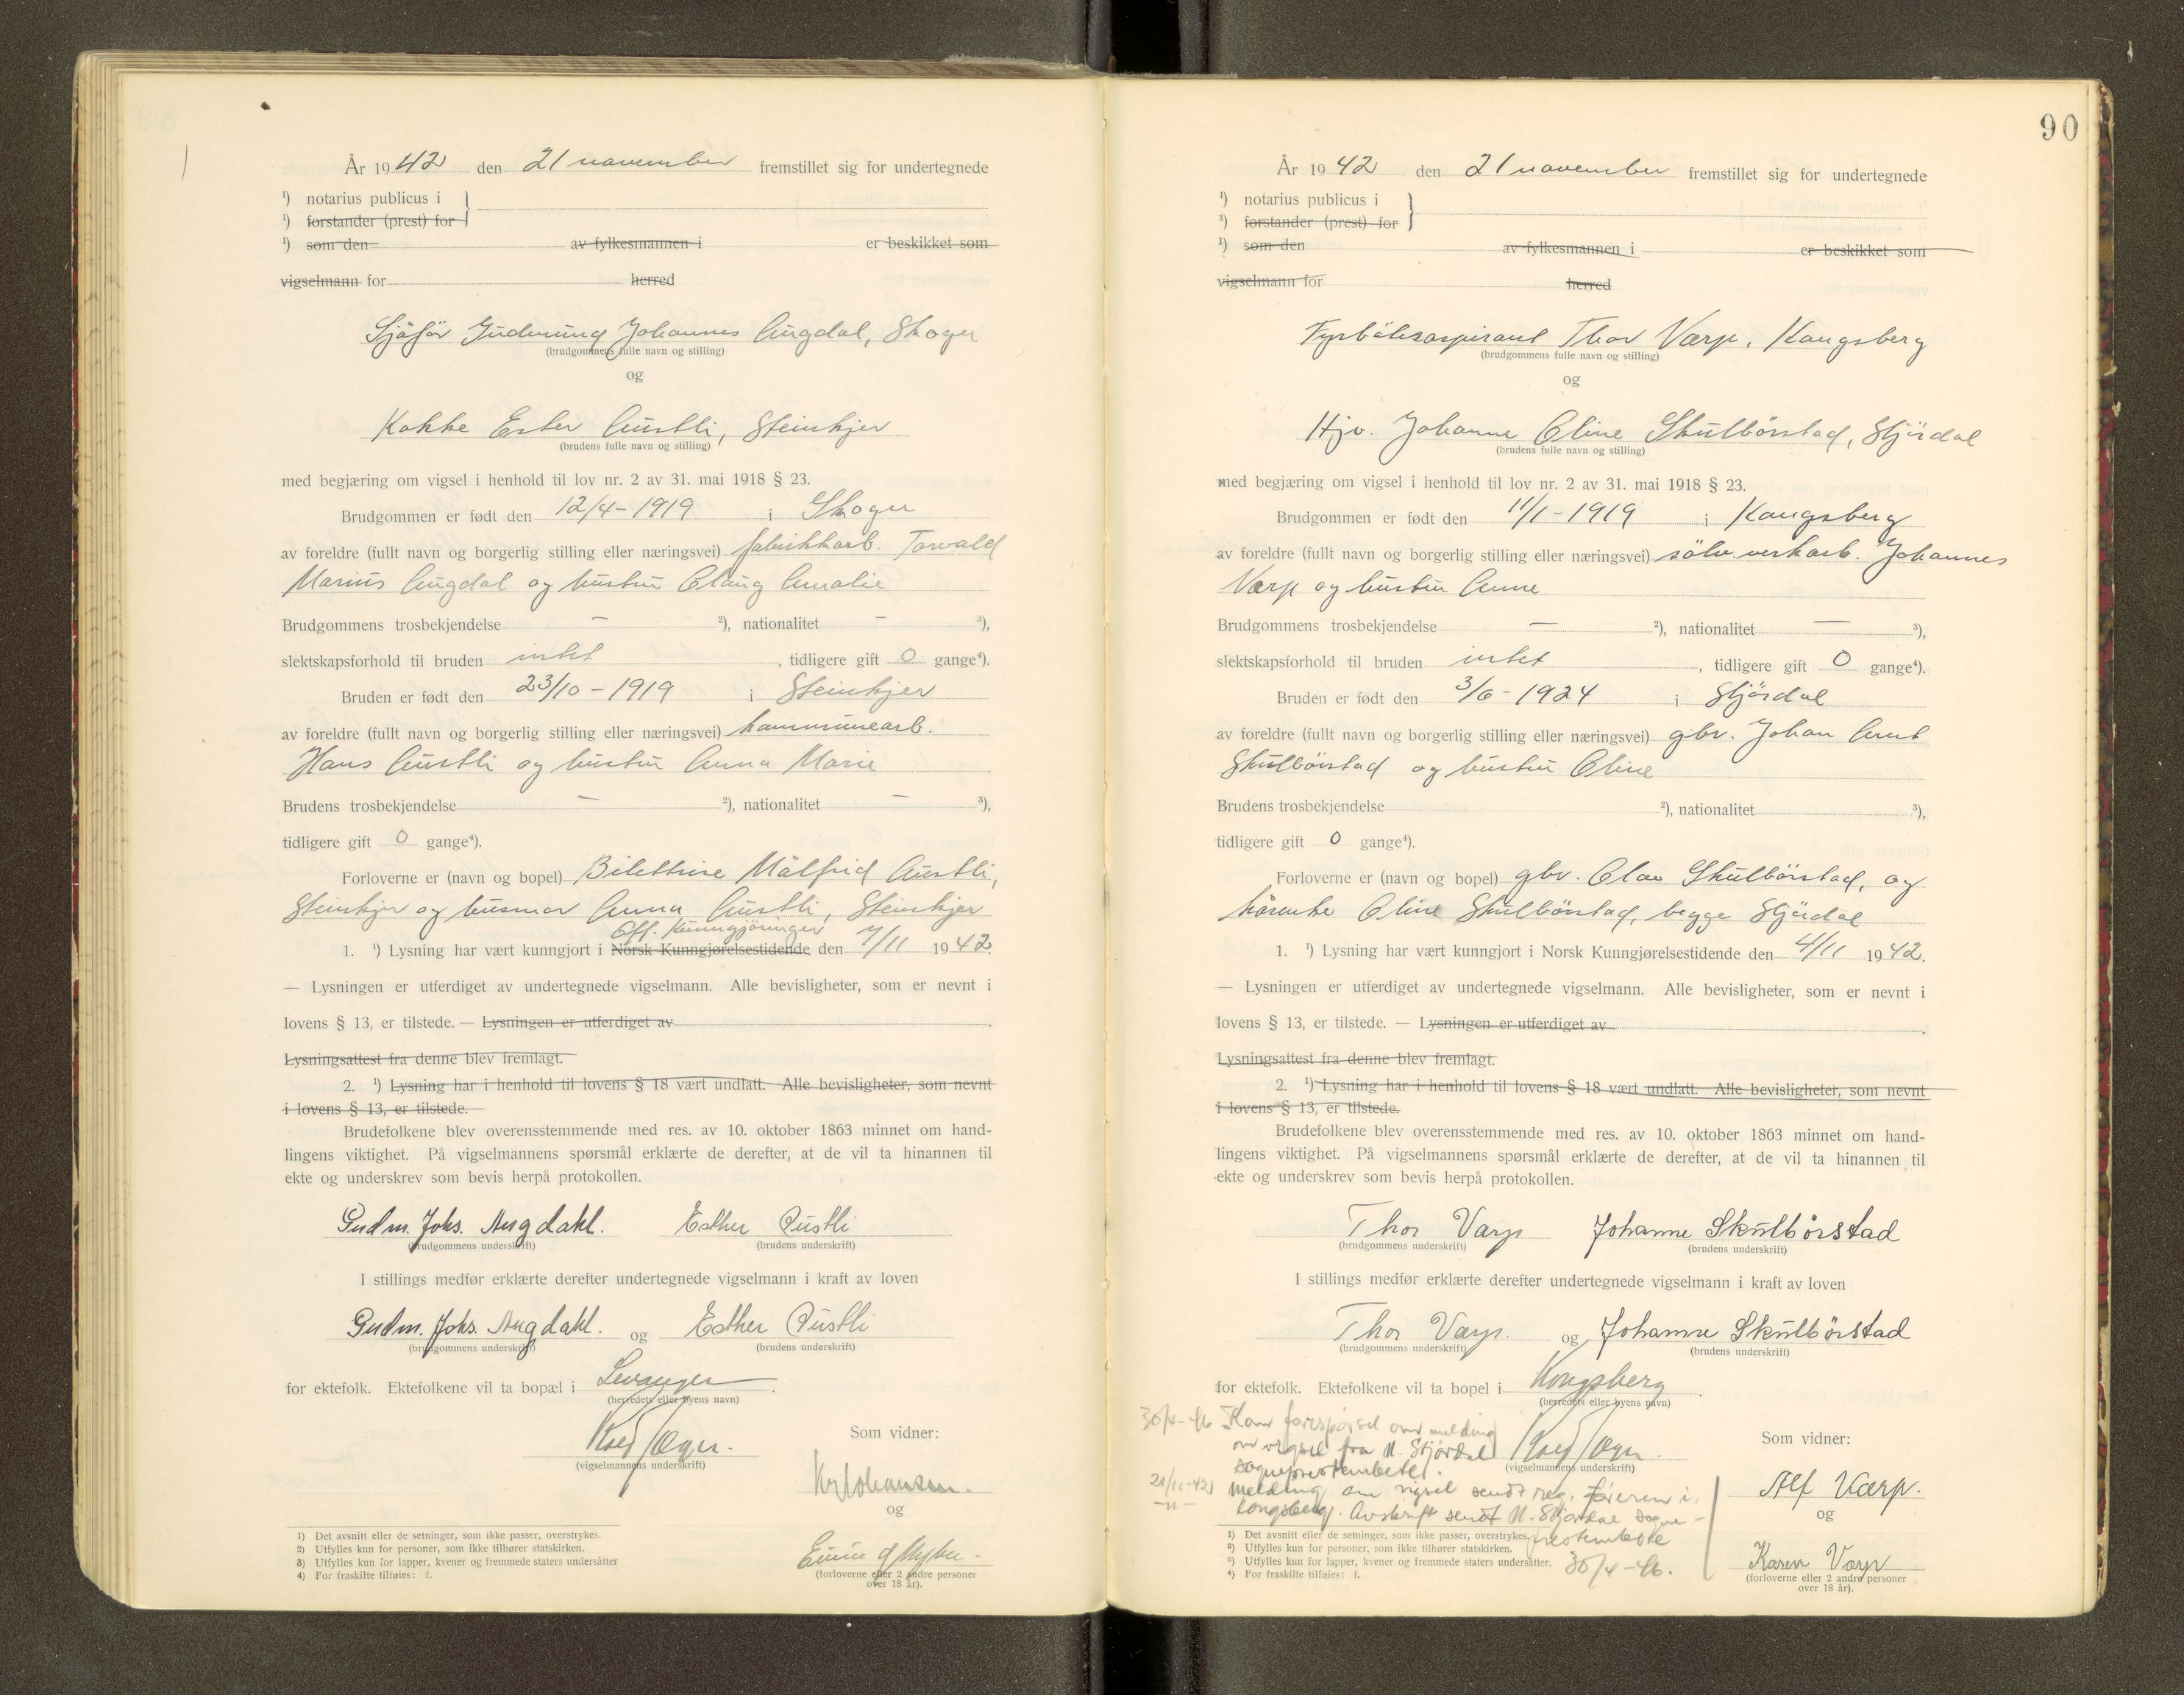 År 1942 den 21 november fremstillet sig for undertegnede
¹) notarius publicus i
¹) forstander (prest) for
¹) som den av fylkesmannen i er beskikket som
vigselmann for herred
Sjåfør Gudmund Johannes Augdal, Skoger
(brudgommens fulle navn og stilling)
og
Kokke Ester Austli, Steinkjer
(brudens fulle navn og stilling)
med begjæring om vigsel i henhold til lov nr. 2 av 31. mai 1918 § 23.
Brudgommen er født den 12/4-1919 i Skoger
av foreldre (fullt navn og borgerlig stilling eller næringsvei) fabrikkarb. Torvald
Marius Augdal og hustru Olaug Amalie
Brudgommens trosbekjendelse — ²), nationalitet — ³),
slektskapsforhold til bruden intet , tidligere gift 0 gange⁴).
Bruden er født den 23/10-1919 i Steinkjer
av foreldre (fullt navn og borgerlig stilling eller næringsvei) kommunearb.
Hans Austli og hustru Anna Marie
Brudens trosbekjendelse — ²), nationalitet — ³),
tidligere gift 0 gange⁴).
Forloverne er (navn og bopel) Bilettrise Målfrid Austli,
Steinkjer og husmor Anna Austli, Steinkjer
Off. Kunngjøringer
1. ¹) Lysning har vært kunngjort i Norsk Kunngjørelsestidende den 7/11 1942.
— Lysningen er utferdiget av undertegnede vigselmann. Alle bevisligheter, som er nevnt i
lovens § 13, er tilstede. — Lysningen er utferdiget av
Lysningsattest fra denne blev fremlagt.
2. ¹) Lysning har i henhold til lovens § 18 vært undlatt. Alle bevisligheter, som nevnt
i lovens § 13, er tilstede.
Brudefolkene blev overensstemmende med res. av 10. oktober 1863 minnet om hand-
lingens viktighet. På vigselmannens spørsmål erklærte de derefter, at de vil ta hinannen til
ekte og underskrev som bevis herpå protokollen.
Gudm. Johs. Augdahl. Esther Austli
(brudgommens underskrift) (brudens underskrift)
I stillings medfør erklærte derefter undertegnede vigselmann i kraft av loven
Gudm. Johs. Augdahl. og Esther Austli
(brudgommens underskrift) (brudens underskrift)
for ektefolk. Ektefolkene vil ta bopæl i Levanger.
(herredets eller byens navn)
Som vidner:
(vigselmannens underskrift)
Johansen.
og
(forloverne eller 2 andre personer
over 18 år).
1) Det avsnitt eller de setninger, som ikke passer, overstrykes.
2) Utfylles kun for personer, som ikke tilhører statskirken.
3) Utfylles kun for lapper, kvener og fremmede staters undersåtter
4) For fraskilte tilføies: f.
90
År 1942 den 21 november fremstillet sig for undertegnede
¹) notarius publicus i
¹) forstander (prest) for
¹) som den av fylkesmannen i er beskikket som
vigselmann for herred
Fyrbøteraspirant Thor Værp, Kongsberg
(brudgommens fulle navn og stilling)
og
Hjv. Johanne Oline Skulbörstad, Stjördal
(brudens fulle navn og stilling)
med begjæring om vigsel i henhold til lov nr. 2 av 31. mai 1918 § 23.
Brudgommen er født den 11/1-1919 i Kongsberg
av foreldre (fullt navn og borgerlig stilling eller næringsvei) sölvverkarb. Johannes
Værp og hustru Anne
Brudgommens trosbekjendelse — ²), nationalitet — ³),
slektskapsforhold til bruden intet , tidligere gift 0 gange⁴).
Bruden er født den 3/6-1924 i Stjördal
av foreldre (fullt navn og borgerlig stilling eller næringsvei) gbr. Johan Arnt
Skulbörstad og hustru Oline
Brudens trosbekjendelse ²), nationalitet ³),
tidligere gift 0 gange⁴).
Forloverne er (navn og bopel) gbr. Olav Skulbörstad, og
kårenke Oline Skulbörstad, begge Stjördal
1. ¹) Lysning har vært kunngjort i Norsk Kunngjørelsestidende den 4/11 1942.
— Lysningen er utferdiget av undertegnede vigselmann. Alle bevisligheter, som er nevnt i
lovens § 13, er tilstede. — Lysningen er utferdiget av
Lysningsattest fra denne blev fremlagt.
2. ¹) Lysning har i henhold til lovens § 18 vært undlatt. Alle bevisligheter, som nevnt
i lovens § 13, er tilstede.
Brudefolkene blev overensstemmende med res. av 10. oktober 1863 minnet om hand-
lingens viktighet. På vigselmannens spørsmål erklærte de derefter, at de vil ta hinannen til
ekte og underskrev som bevis herpå protokollen.
Thor Værp Johanne Skulbörstad
(brudgommens underskrift) (brudens underskrift)
I stillings medfør erklærte derefter undertegnede vigselmann i kraft av loven
Thor Værp. og Johanne Skulbörstad
(brudgommens underskrift) (brudens underskrift)
for ektefolk. Ektefolkene vil ta bopel i Kongsberg.
(herredets eller byens navn)
30/4-46 Kom forespørsel om melding
om vigsel fra N. Stjørdal
sogneprestembete.
21/11-42 Melding om vigsel sendt reg. føreren i
Kongsberg. Avskrift sendt N. Stjørdal sogne-
prestembete
30/4-46.
(vigselmannens underskrift)
Som vidner:
Alf Værp.
og
Karen Værp
(forloverne eller 2 andre personer
over 18 år).
¹) Det avsnitt eller de setninger, som ikke passer, overstrykes.
²) Utfylles kun for personer, som ikke tilhører statskirken.
³) Utfylles kun for lapper, kvener og fremmede staters undersåtter.
⁴) For fraskilte tilføies: f.